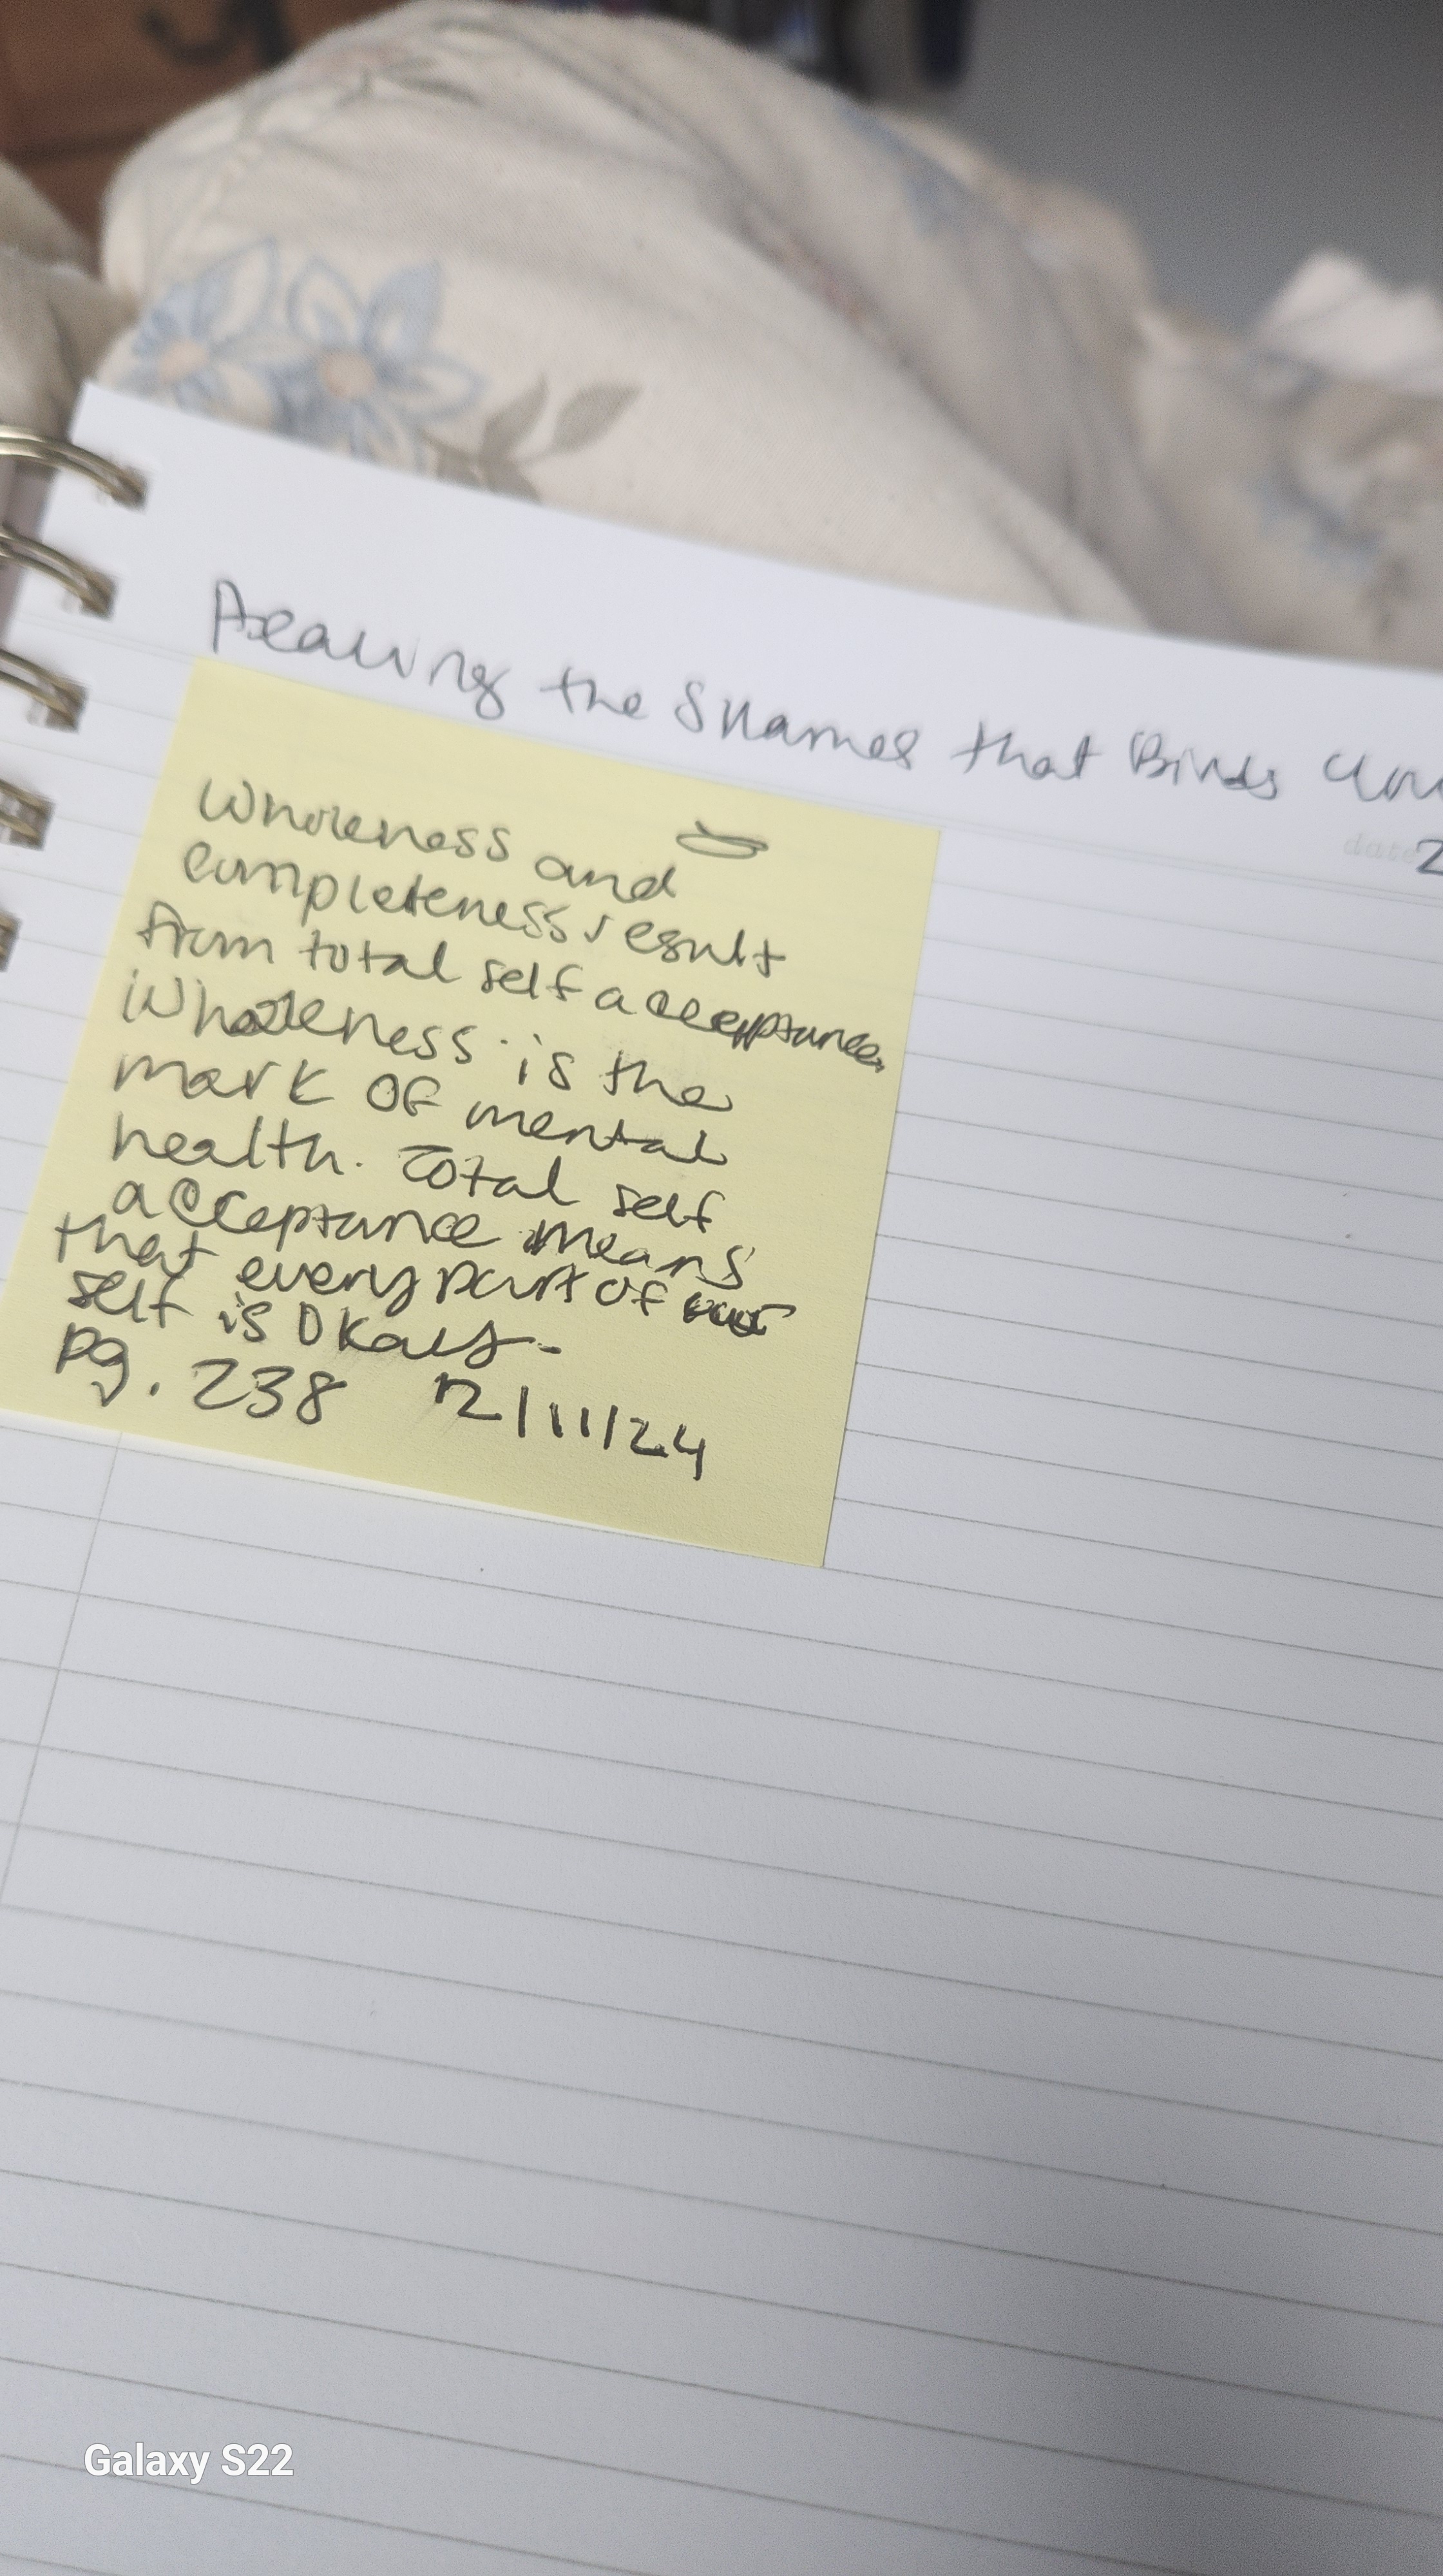 Healing the Shames that Binds You
date 2
Wholeness and
completeness result
from total self acceptance.
Wholeness is the
mark of mental
health. Total self
acceptance means
that every part of our
self is Okay.
pg. 238 12/11/24
Galaxy S22